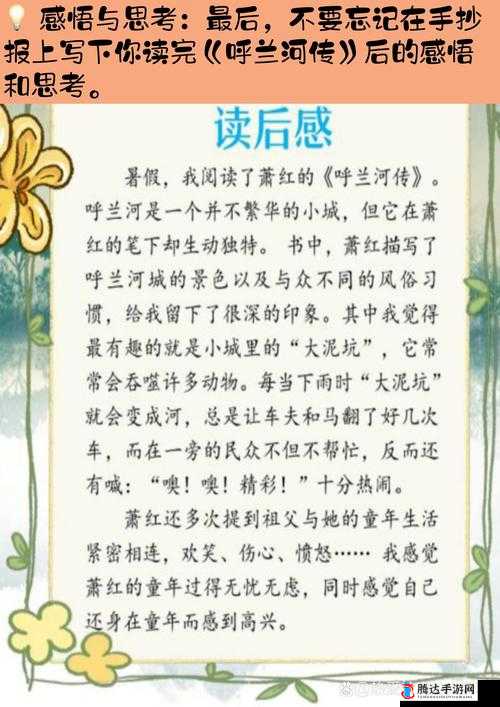 感悟与思考：最后，不要忘记在手抄
报上写下你读完《呼兰河传》后的感悟
和思考。
读后感
暑假，我阅读了萧红的《呼兰河传》。
呼兰河是一个并不繁华的小城，但它在萧
红的笔下却生动独特。 书中，萧红描写了
呼兰河城的景色以及与众不同的风俗习
惯，给我留下了很深的印象。其中我觉得
最有趣的就是小城里的“大泥坑”，它常
常会吞噬许多动物。每当下雨时“大泥坑”
就会变成河，总是让车夫和马翻了好几次
车，而在一旁的民众不但不帮忙，反而还
有喊：“噢！噢！精彩！”十分热闹。
萧红还多次提到祖父与她的童年生活
紧密相连，欢笑、伤心、愤怒…… 我感觉
萧红的童年过得无忧无虑，同时感觉自己
还身在童年而感到高兴。
腾达手游网